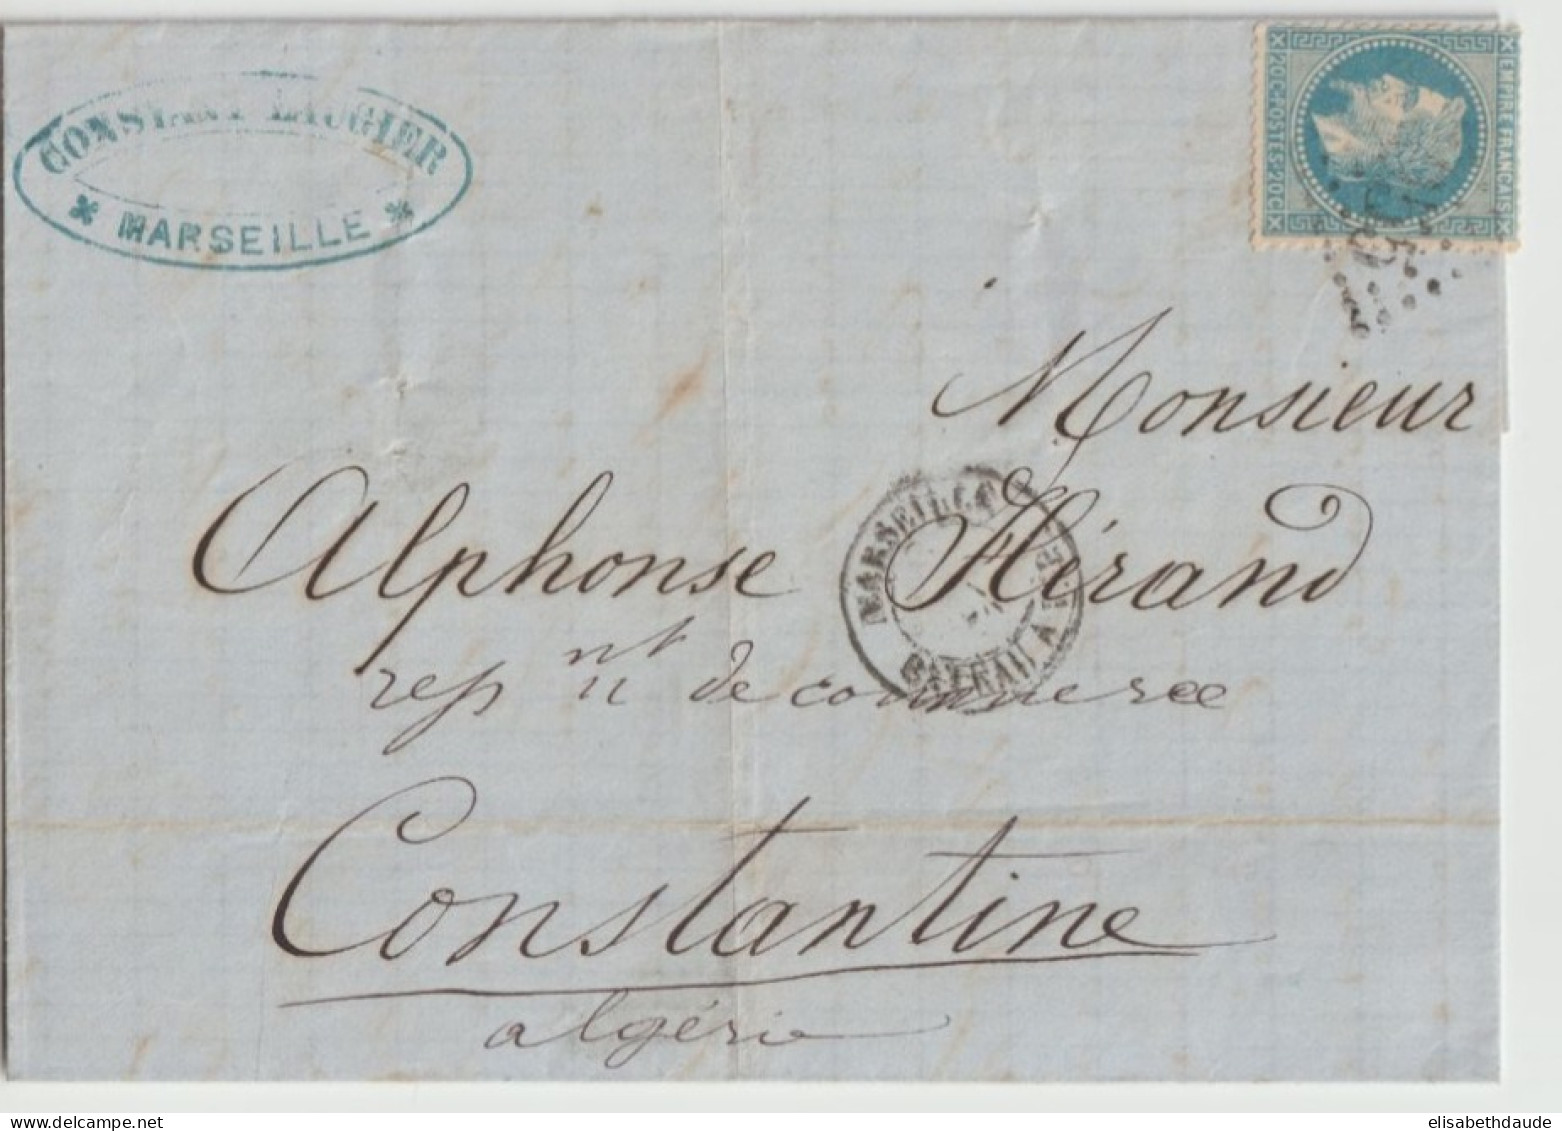 CONSTANT LAUGIER
* MARSEILLE *
EMPIRE FRANÇAIS
20 C POSTES 20 C
Monsieur
Alphonse Hérand
rep nt de commerce
MARSEILLE
BATEAU A
Constantine
algérie
delcampe.net
elisabethdaude